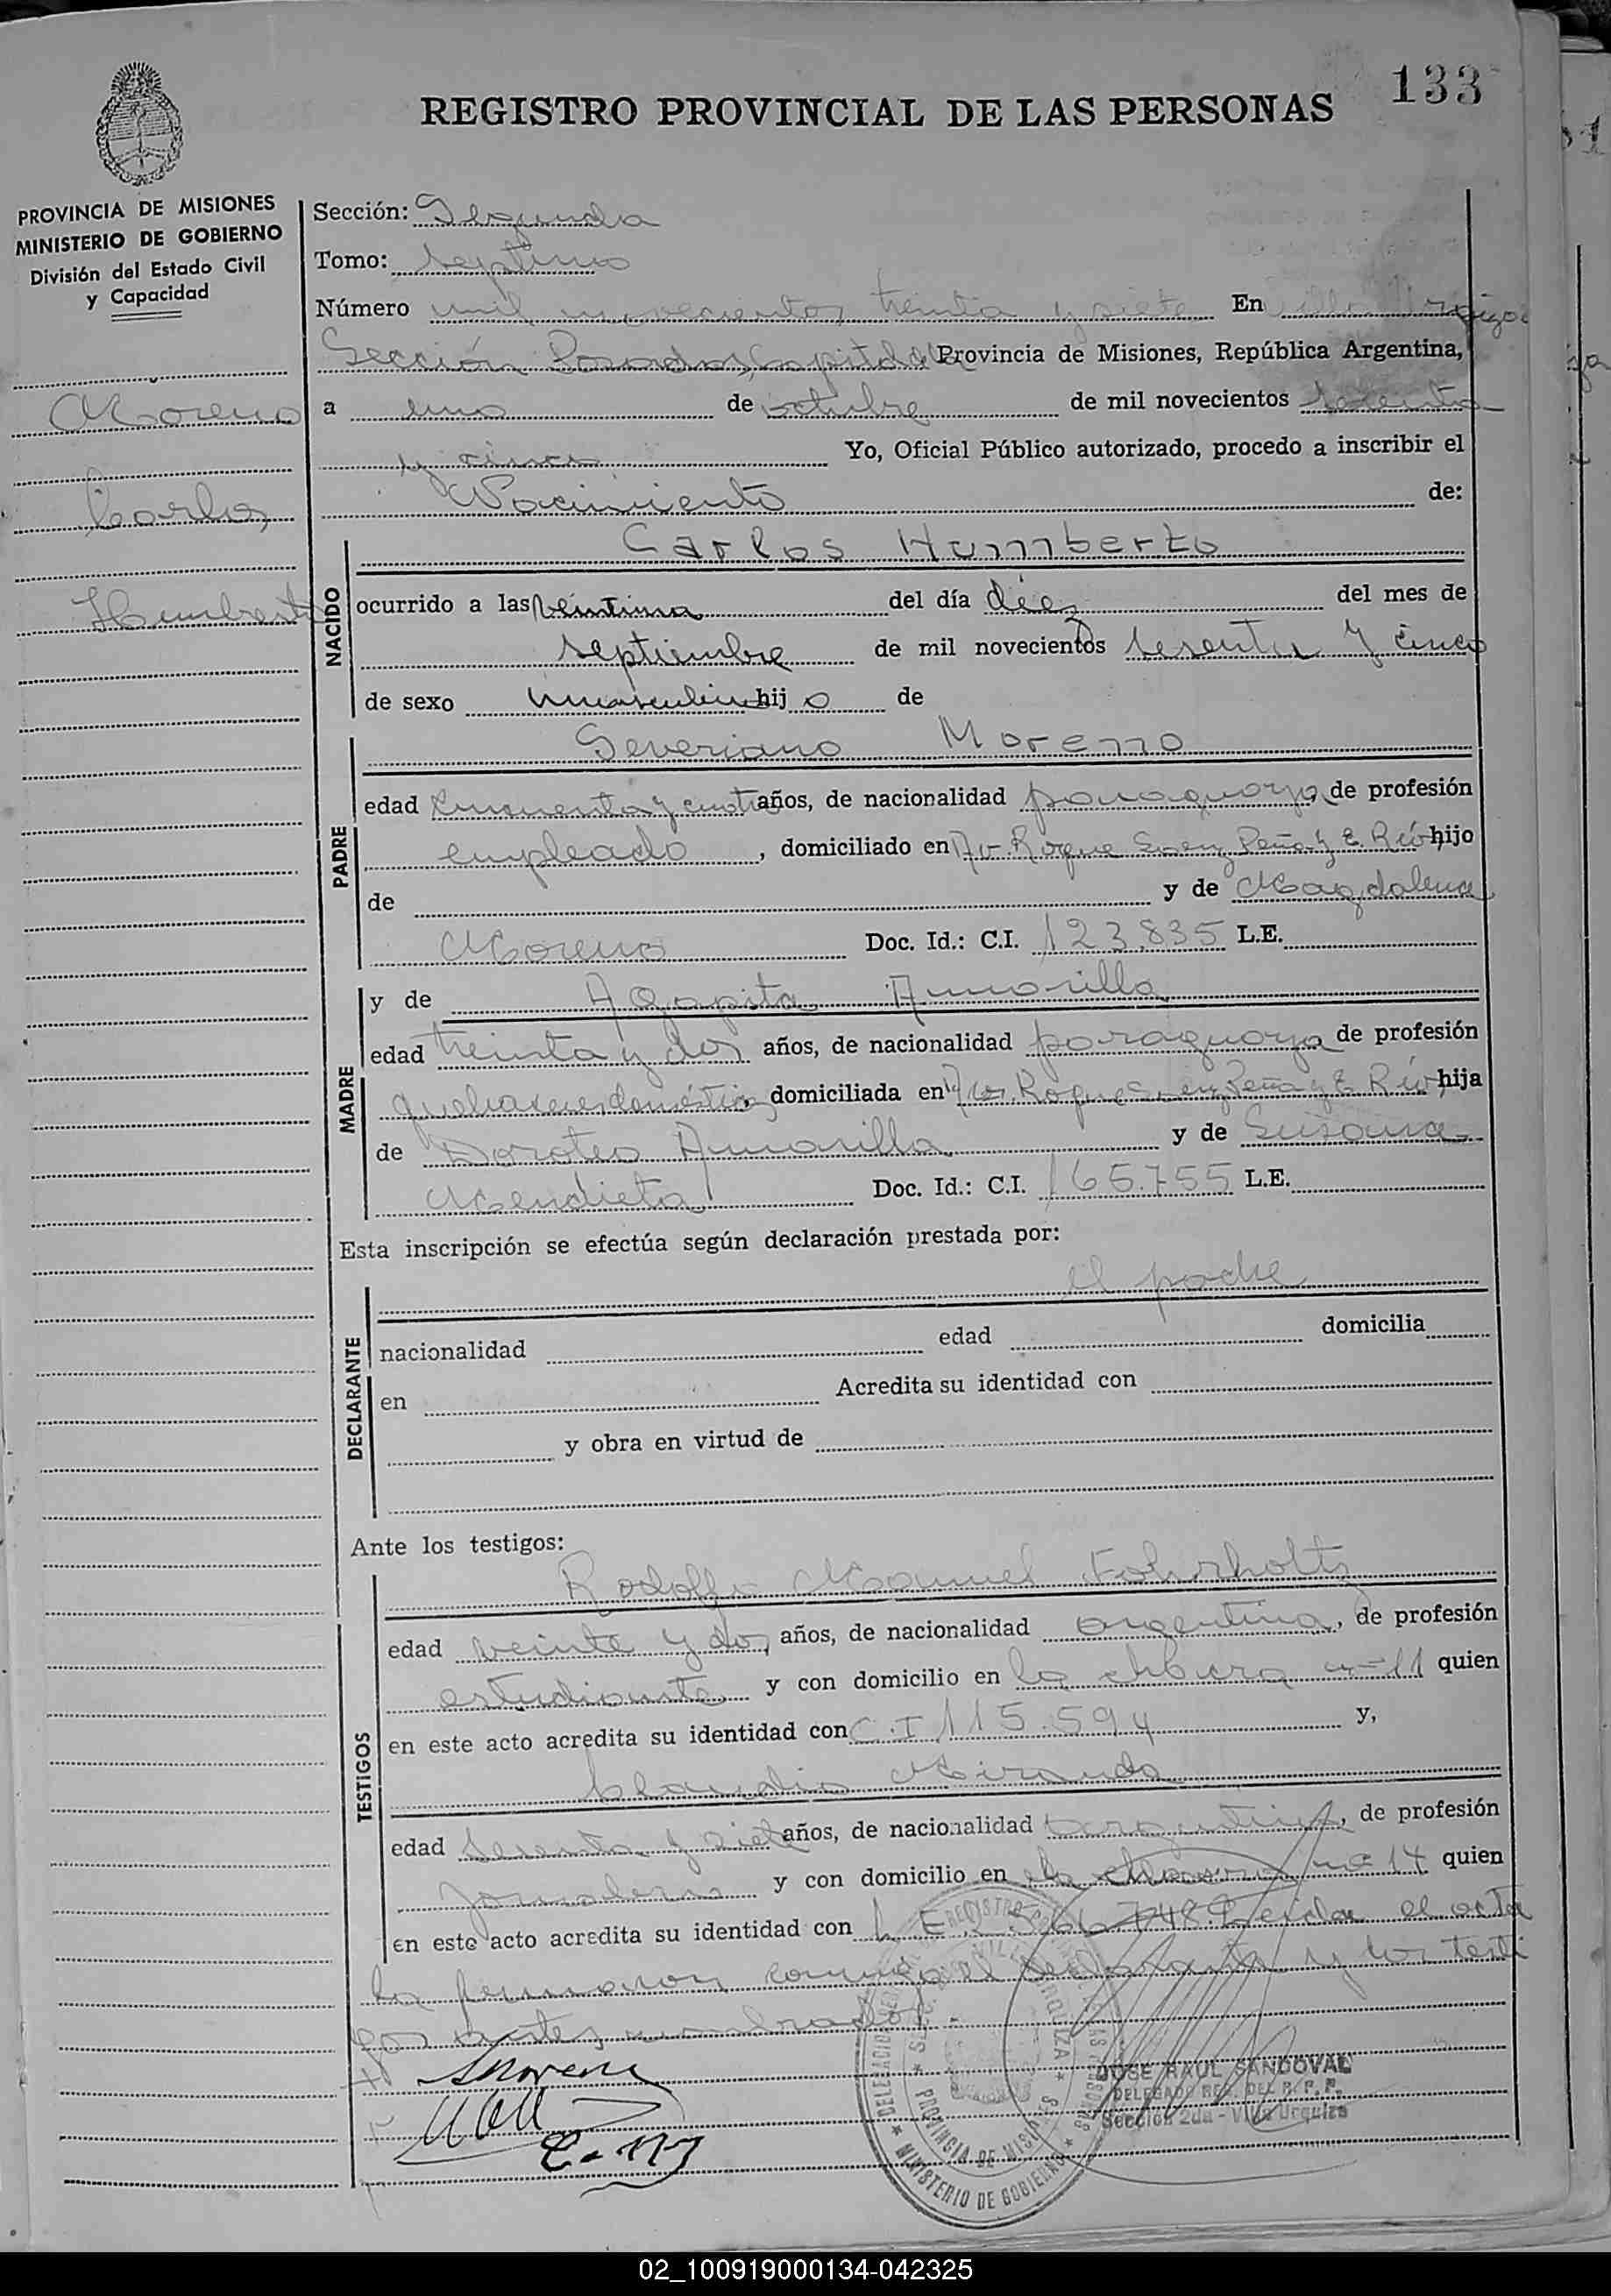 133
REGISTRO PROVINCIAL DE LAS PERSONAS
PROVINCIA DE MISIONES
MINISTERIO DE GOBIERNO
División del Estado Civil
y Capacidad
Moreno
Carlos
Humberto
Sección: Segunda
Tomo: septimo
Número mil novecientos treinta y siete En Villa Urquiza
Sección Posadas, Capital de la Provincia de Misiones, República Argentina,
a uno de octubre de mil novecientos sesenta
y cinco Yo, Oficial Público autorizado, procedo a inscribir el
Nacimiento de:
NACIDO
Carlos Humberto
ocurrido a las veintiuna del día diez del mes de
septiembre de mil novecientos sesenta y cinco
de sexo masculino hij o de
PADRE
Severiano Moreno
edad cincuenta y cuatro años, de nacionalidad paraguaya, de profesión
empleado, domiciliado en Av. Roque Saenz Peña y E. Ríos hijo
de y de Magdalena
Moreno Doc. Id.: C.I. 123.835 L.E.
MADRE
y de Agapita Amarilla
edad treinta y dos años, de nacionalidad paraguaya de profesión
quehaceres domésticos, domiciliada en Av. Roque Saenz Peña y E. Ríos hija
de Doroteo Amarilla y de Susana
Mendieta Doc. Id.: C.I. 165.755 L.E.
Esta inscripción se efectúa según declaración prestada por:
DECLARANTE
el padre
nacionalidad edad domicilia
en Acredita su identidad con
y obra en virtud de
Ante los testigos:
TESTIGOS
Rodolfo Manuel
edad veinte y dos, años, de nacionalidad argentina, de profesión
estudiante y con domicilio en la chacra n-11 quien
en este acto acredita su identidad con C.I 115.594 y,
Claudio Miranda
edad sesenta y siete años, de nacionalidad argentina, de profesión
jornalero y con domicilio en la chacra nº 14 quien
en este acto acredita su identidad con L.E. 2.566.748. Leída el acta
la firmaron conmigo el declarante y los testi
gos antes nombrados.
SMoreno
JOSE RAUL SANDOVAL
DELEGADO REG. DEL R. P. P.
Sección 2da - Villa Urquiza
PROVINCIA DE MISIONES
MINISTERIO DE GOBIERNO
02_100919000134-042325